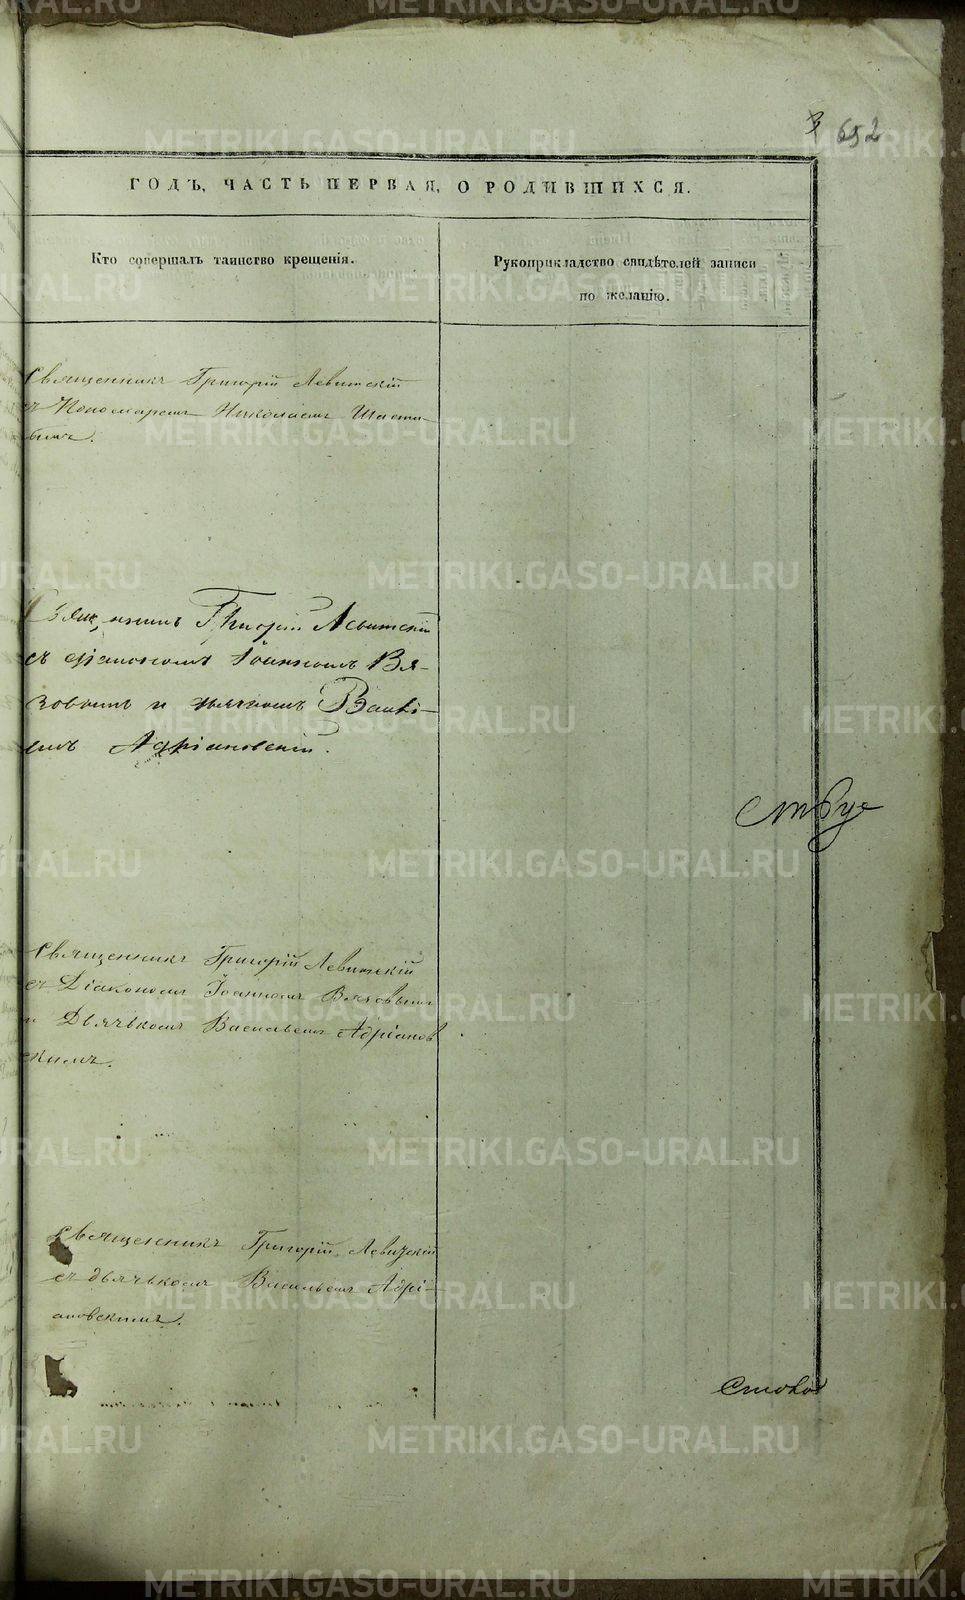 3 652
ГОДЪ, ЧАСТЬ ПЕРВАЯ, О РОДИВШИХСЯ.
Кто совершалъ таинство крещенія.
Рукоприкладство свидѣтелей записи
по желанію.
Священникъ Григорій Левитскій
съ Пономаремъ Николаемъ
Священникъ Григорій Левитскій
съ діакономъ Іоанномъ Вя-
зовымъ и дьячкомъ Васи-
емъ Адріановскій.
Священникъ Григорій Левитскій
съ Діакономъ Іоанномъ Вязовымъ
и Дьячькомъ Васильемъ Адріанов
скимъ.
Священникъ Григорій Левитскій
съ дьячькомъ Васильемъ Адрі-
ановскимъ.
METRIKI.GASO-URAL.RU